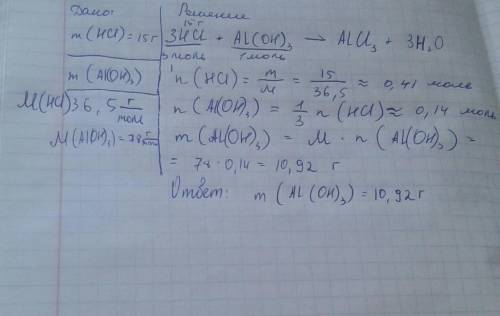 Дано:
m(HCl) = 15 г
m(Al(OH)₃)
M(HCl) 36,5 г/моль
M(Al(OH)₃) = 78 г/моль
Решение
15 г
3HCl + Al(OH)₃ → AlCl₃ + 3H₂O
3 моль 1 моль
n(HCl) = m/M = 15/36,5 ≈ 0,41 моль
n(Al(OH)₃) = 1/3 n(HCl) ≈ 0,14 моль
m(Al(OH)₃) = M · n(Al(OH)₃) =
= 78 · 0,14 = 10,92 г
Ответ: m(Al(OH)₃) = 10,92 г